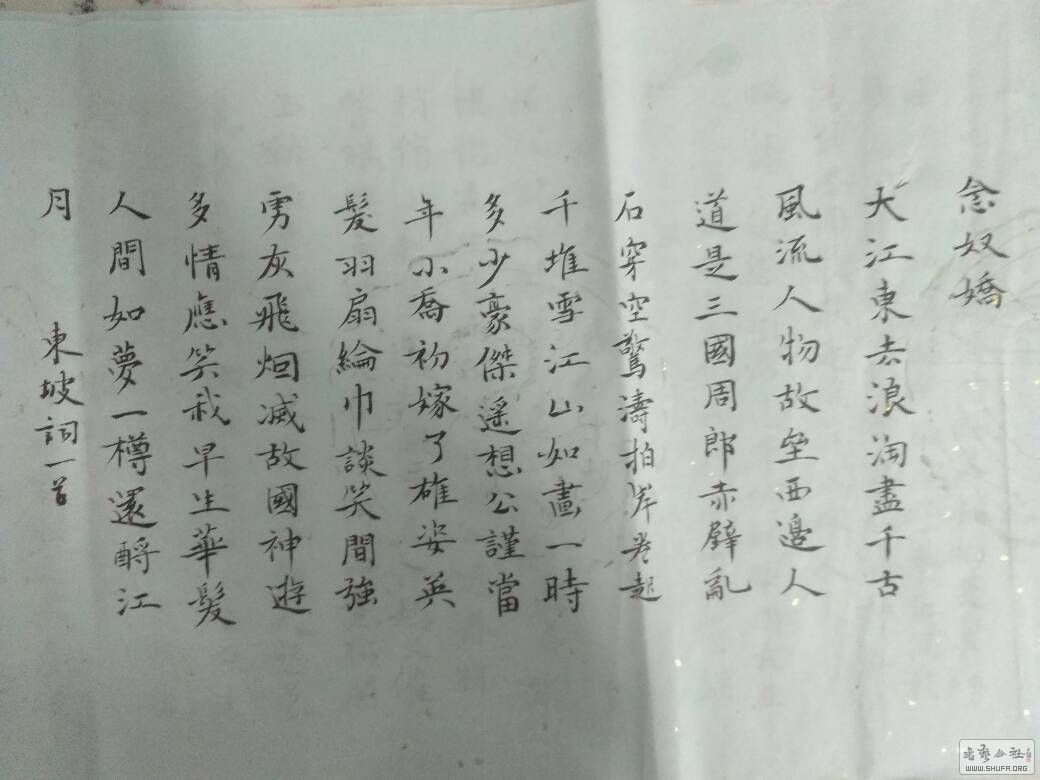 念奴嬌
大江東去浪淘盡千古
風流人物故壘西邊人
道是三國周郎赤壁亂
石穿空驚濤拍岸卷起
千堆雪江山如畫一時
多少豪傑遥想公謹當
年小喬初嫁了雄姿英
髮羽扇綸巾談笑間強
虜灰飛烟滅故國神遊
多情應笑我早生華髮
人間如夢一樽還酹江
月
東坡詞一首
書藝公社
WWW.SHUFA.ORG